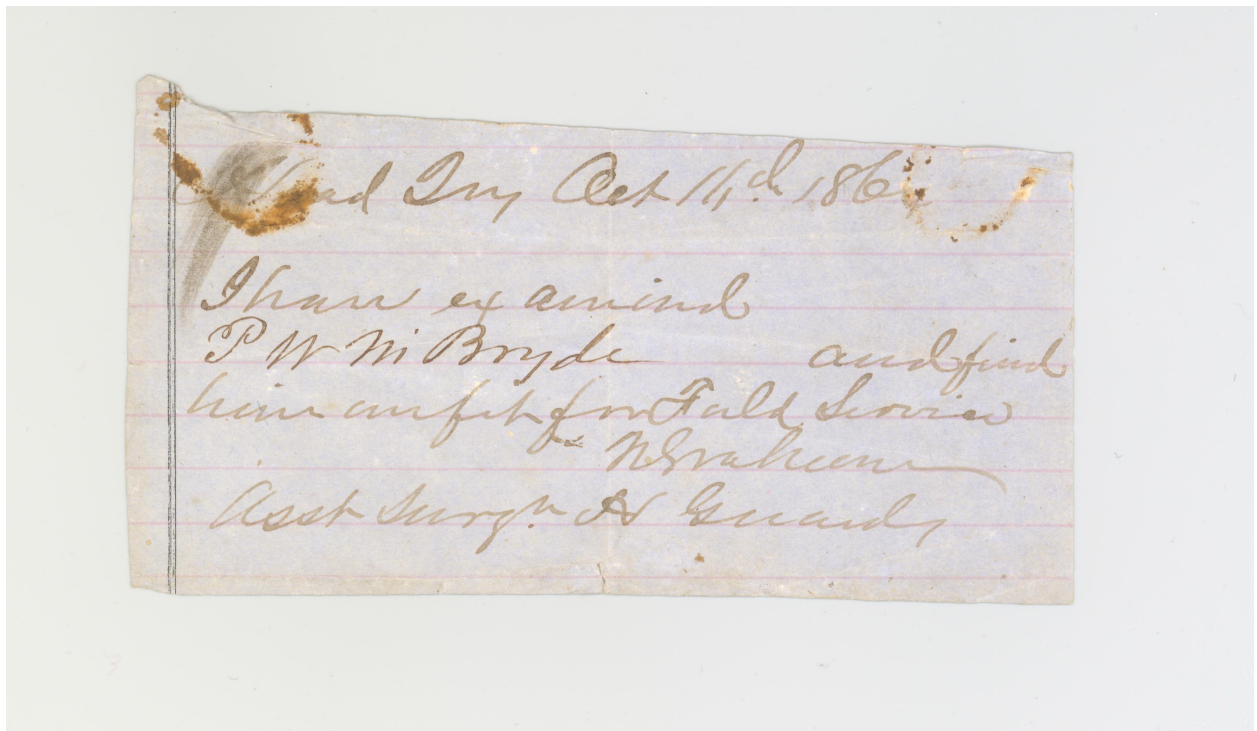 Head Qrs Oct 14th 186
I have examined
P W McBryde and find
him unfit for Field Service
N Graham
Asst Surgn H Guards